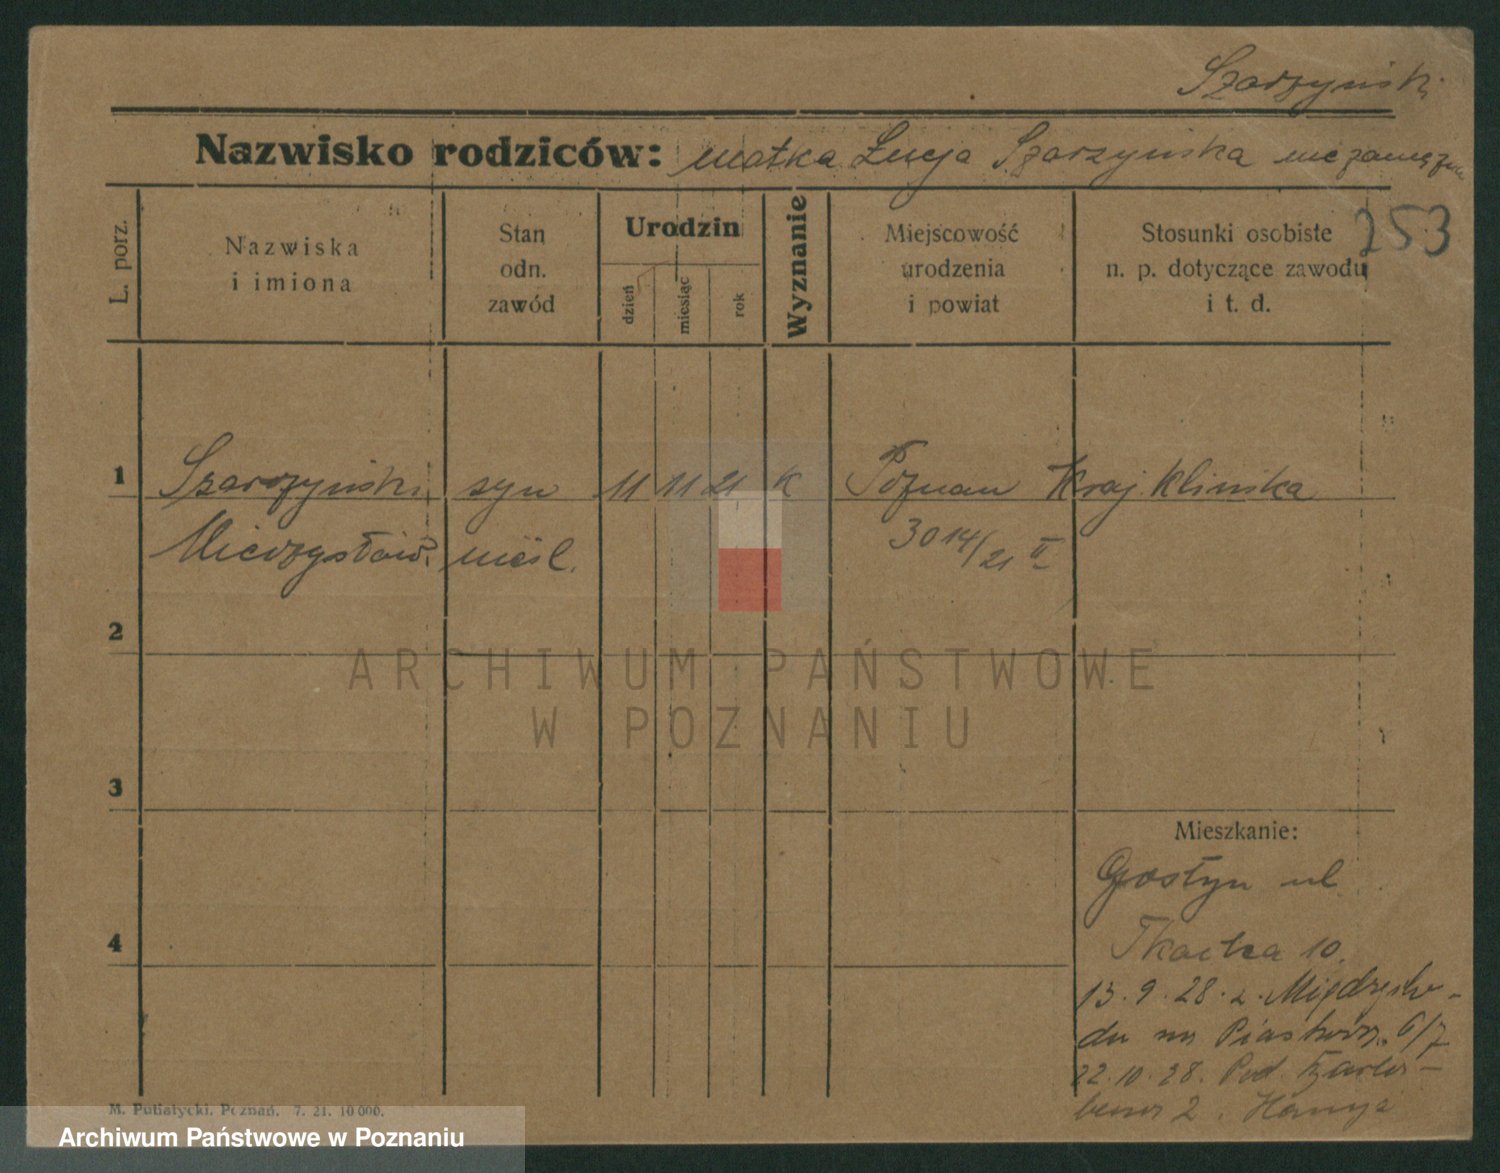 Szarzyński
Nazwisko rodziców: matka Łucja Szarzyńska niezamężna
253
L. porz.
Nazwiska
i imiona
Stan
odn.
zawód
Urodzin
dzień
miesiąc
rok
Wyznanie
Miejscowość
urodzenia
i powiat
Stosunki osobiste
n. p. dotyczące zawodu
i t. d.
1 Szarzyński syn 11 11 21 K Poznań Kraj. Klinika
Mieczysław nieśl. 3014/21 II
2
ARCHIWUM PAŃSTWOWE
W POZNANIU
3
Mieszkanie:
Gostyn ul
4
Tkacka 10.
13.9.28. z Międzycho-
du na Piaskow. 6/7
22.10.28. Pod
2. Hanya
M. Putiatycki, Poznań. 7. 21. 10 000.
Archiwum Państwowe w Poznaniu